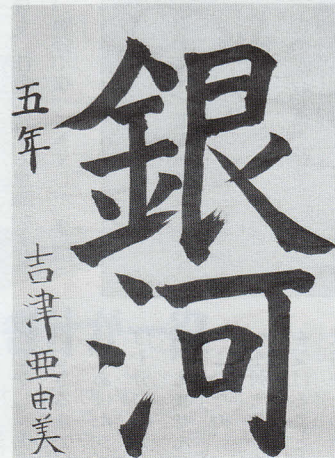 銀河
五年 吉津亜由美